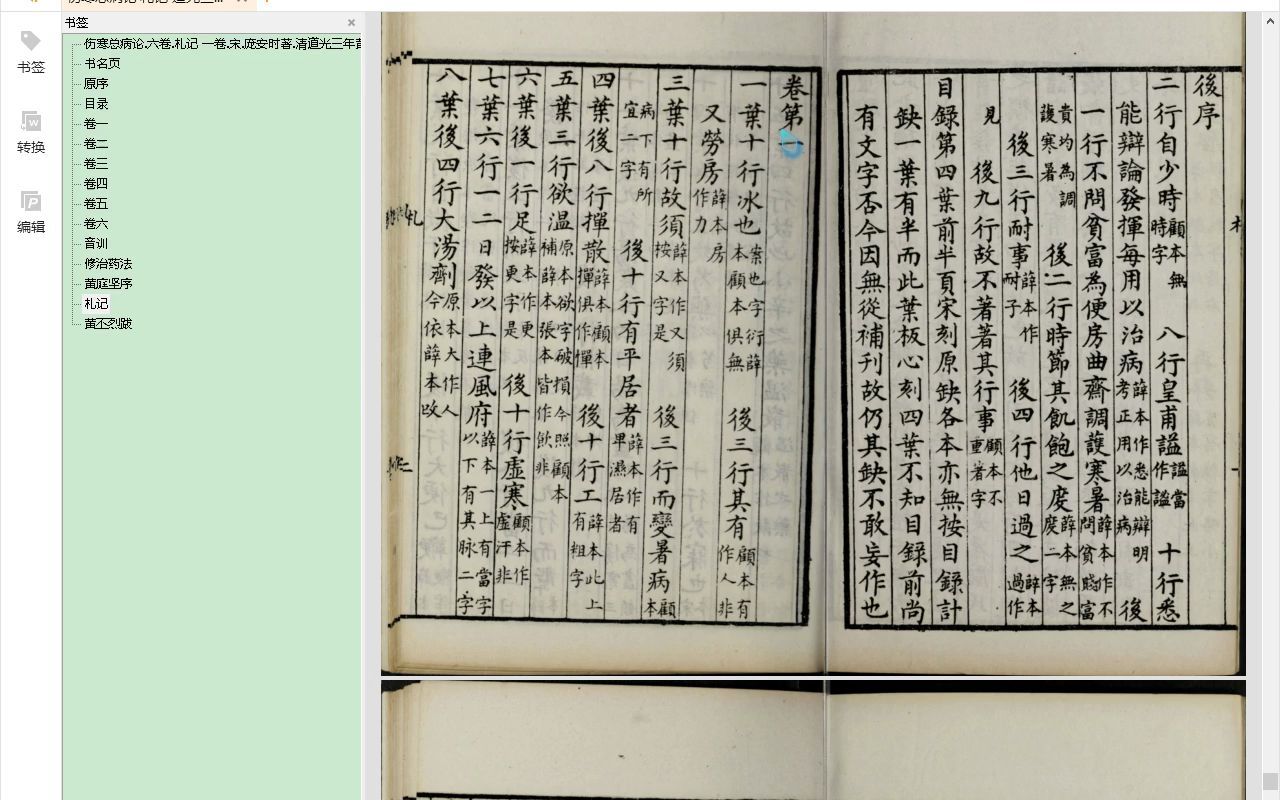 书签
书签
转换
编辑
伤寒总病论.六卷.札记 一卷.宋.庞安时著.清道光三年
书名页
原序
目录
卷一
卷二
卷三
卷四
卷五
卷六
音训
修治药法
黄庭坚序
札记
黄丕烈跋
後序
二行自少時顧本無時字 八行皇甫謐謐當作謐 十行悉
能辯論發揮每用以治病薛本作悉能辯明考正用以治病 後
一行不問貧富為便房曲齋調護寒暑薛本作不問貧賤富
貴均為調護寒暑 後二行時節其飢飽之度薛本無之度二字
後三行耐事薛本作耐子 後四行他日過之薛本過作
見 後九行故不著著其行事顧本不重著字
目録第四葉前半頁宋刻原缺各本亦無按目録計
缺一葉有半而此葉板心刻四葉不知目録前尚
有文字否今因無從補刊故仍其缺不敢妄作也
卷第
一葉十行冰也案也字衍薛本顧本俱無 後三行其有顧本有作人非
又勞房薛本房作力
三葉十行故須薛本作又須按又字是 後三行而變暑病顧本
病下有所宜二字 後十行有平居者薛本作有早濕居者
四葉後八行撣散薛本顧本撣俱作憚 後十行工薛本此上有粗字
五葉三行欲温原本欲字破損今照顧本補薛本張本皆作飲非
六葉後一行足薛本作更按更字是 後十行虚寒顧本作虚汗非
七葉六行一二日發以上連風府薛本一上有當字以下有其脉二字
八葉後四行大湯劑原本大作人今依薛本改